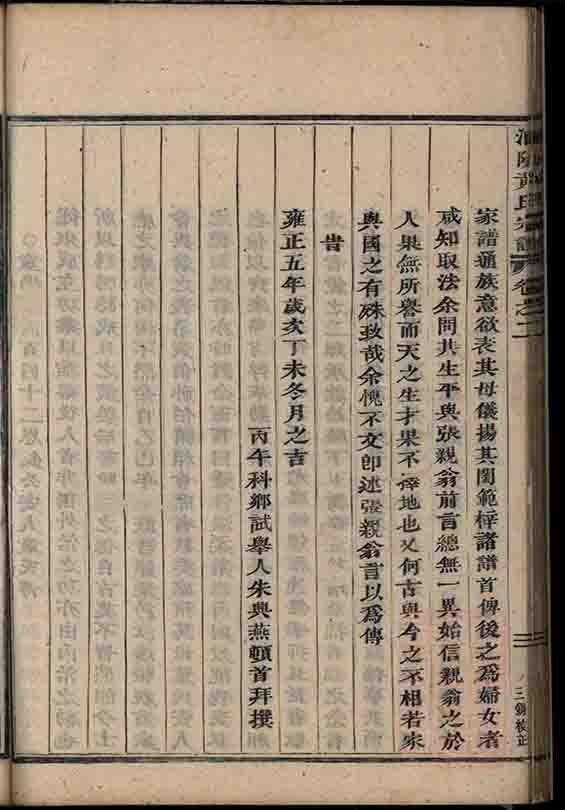 黃氏宗譜 卷之二
家譜通族意欲表其母儀揚其閨範梓諸譜首傳後之為婦女者
咸知取法余問其生平與張親翁前言總無一異始信親翁之於
人果無所譽而天之生才果不擇地也又何古與今之不相若家
與國之有殊致哉余愧不文卽述張親翁言以為傳
旹
雍正五年歲次丁未冬月之吉
丙午科鄉試舉人朱興燕頓首拜撰
三錫校正